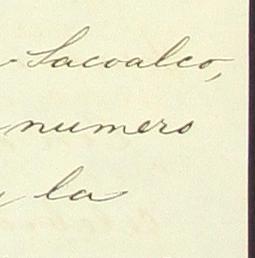 Sacoalco,
numero
y la